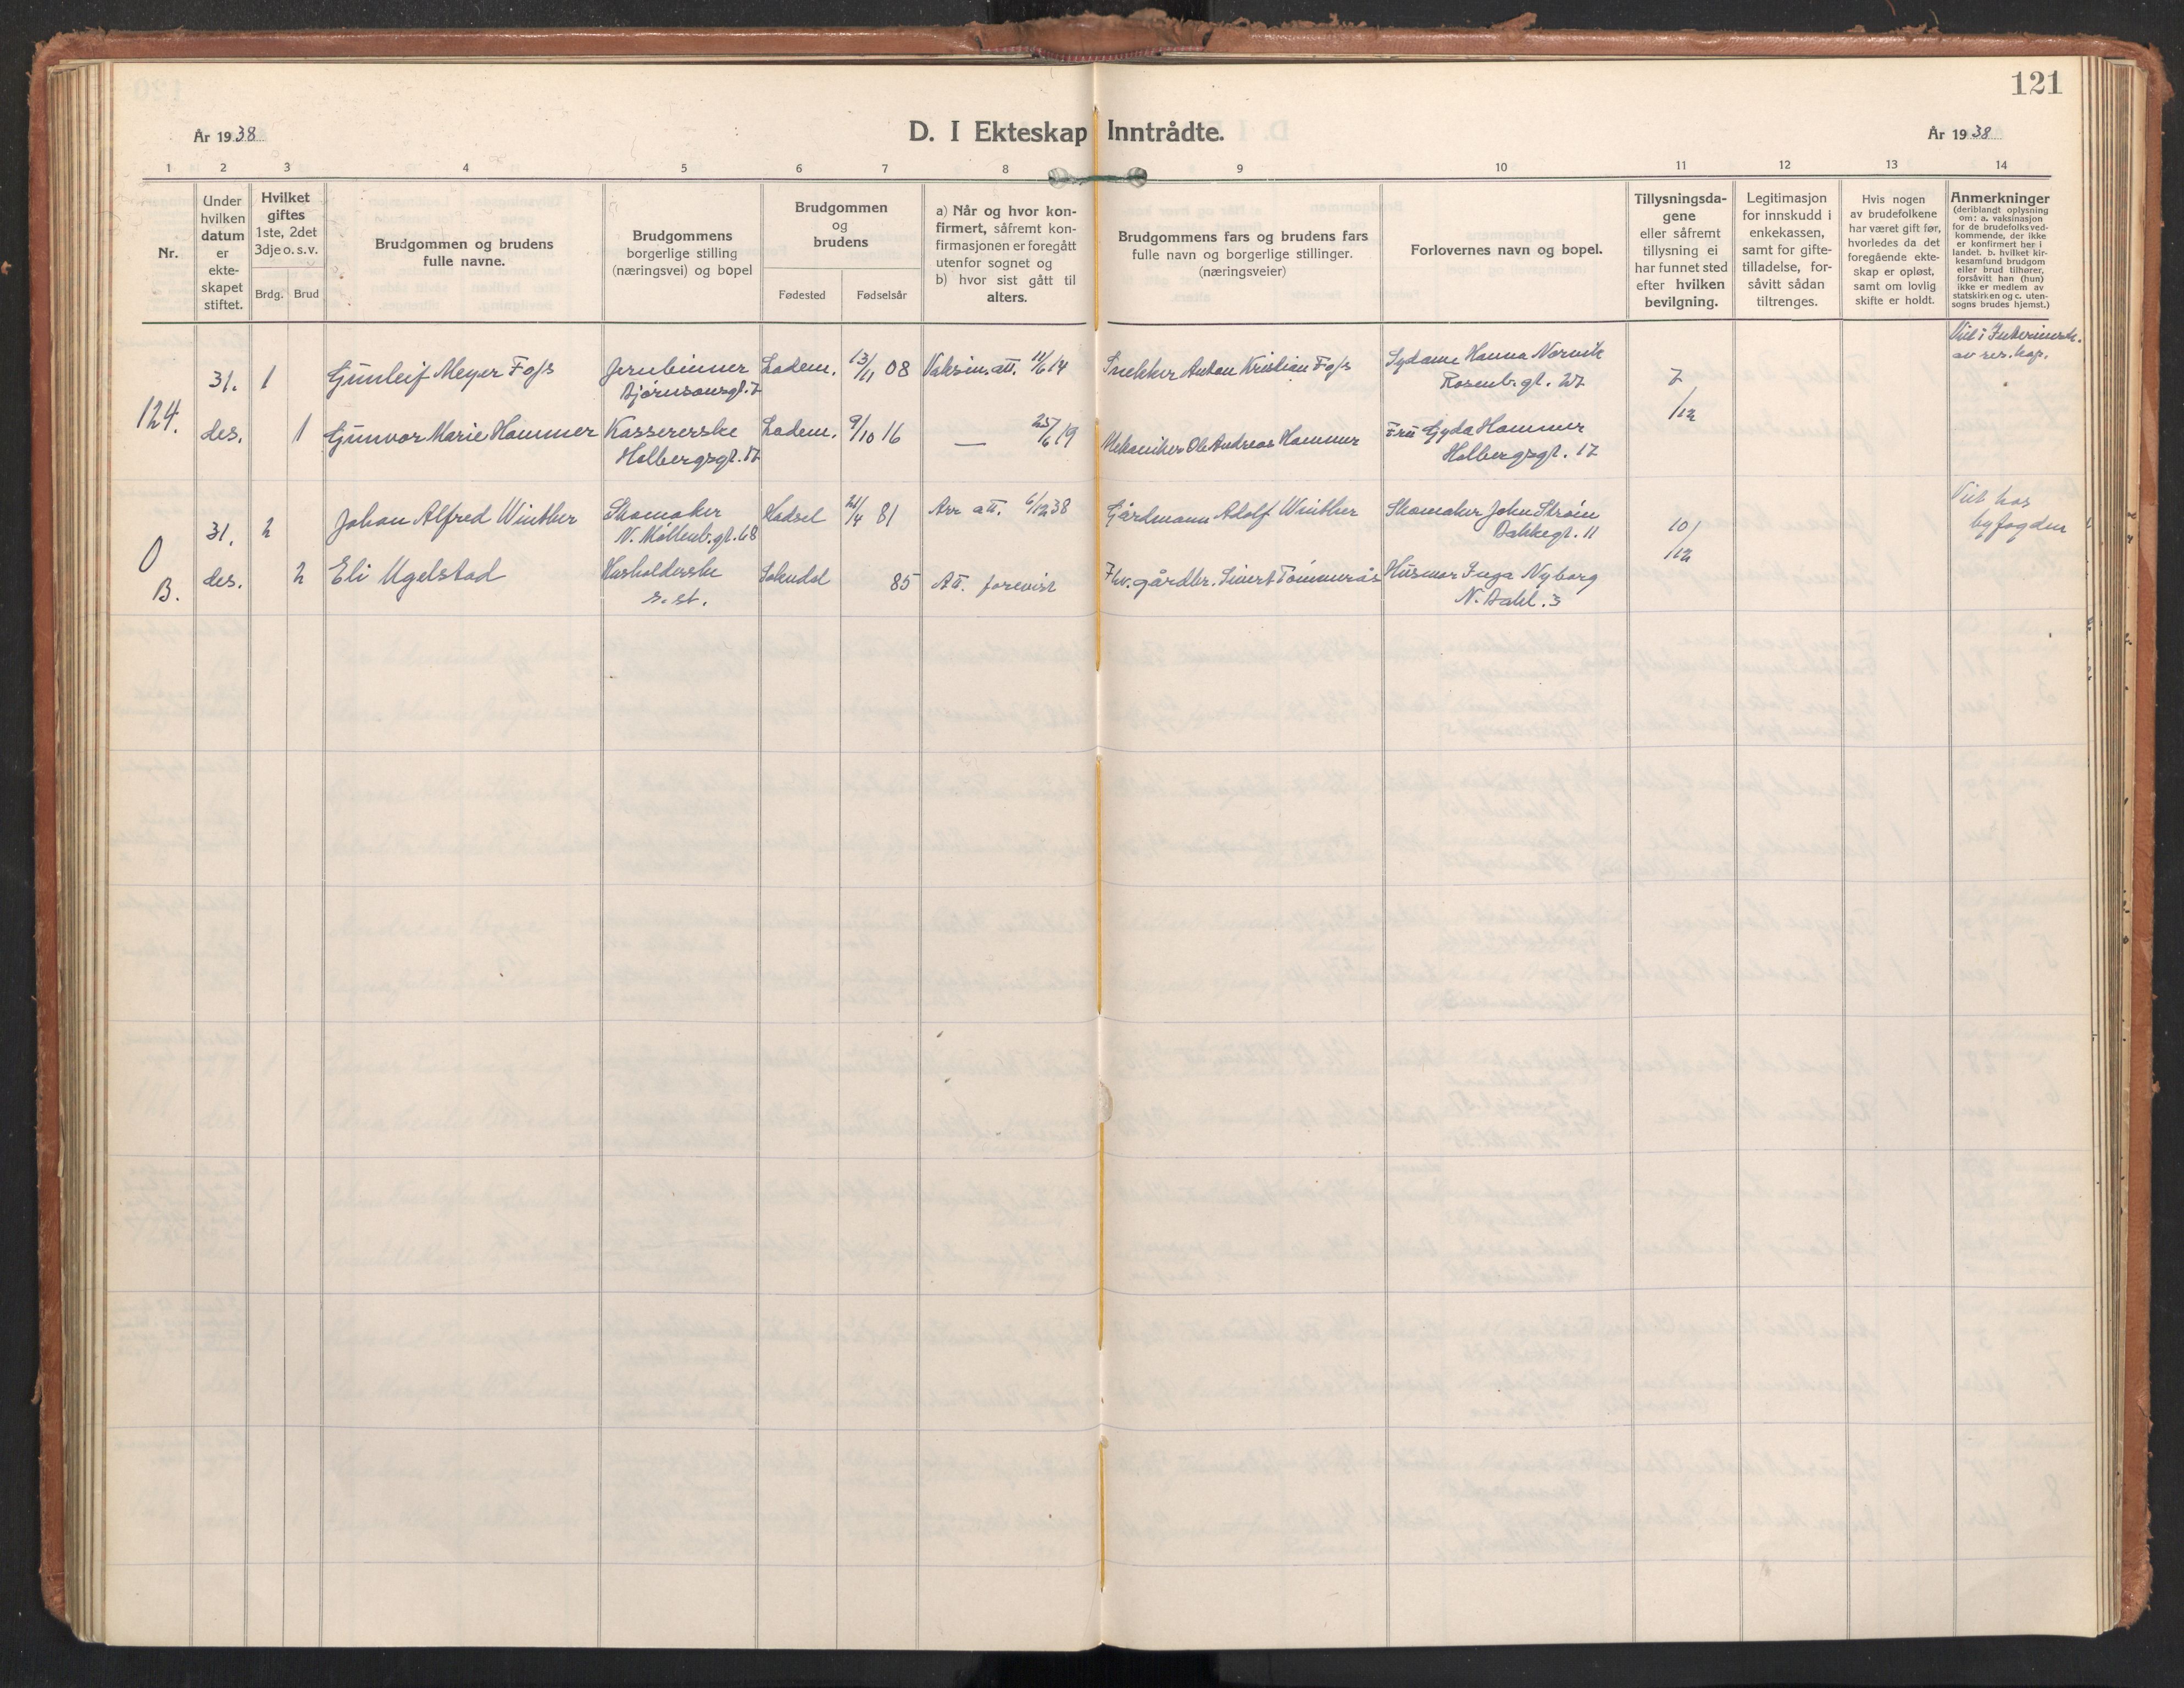 121
År 1938
D. I Ekteskap Inntrådte.
År 1938
1 2 3 4 5 6 7 8 9 10 11 12 13 14
Nr.
Under
hvilken
datum
er
ekte-
skapet
stiftet.
Hvilket
giftes
1ste, 2det
3dje o. s. v.
Brdg. Brud
Brudgommen og brudens
fulle navne.
Brudgommens
borgerlige stilling
(næringsvei) og bopel
Brudgommen
og
brudens
Fødested Fødselsår
a) Når og hvor kon-
firmert, såfremt kon-
firmasjonen er foregått
utenfor sognet og
b) hvor sist gått til
alters.
Brudgommens fars og brudens fars
fulle navn og borgerlige stillinger.
(næringsveier)
Forlovernes navn og bopel.
Tillysningsda-
gene
eller såfremt
tillysning ei
har funnet sted
efter hvilken
bevilgning.
Legitimasjon
for innskudd i
enkekassen,
samt for gifte-
tilladelse, for-
såvitt sådan
tiltrenges.
Hvis nogen
av brudefolkene
har været gift før,
hvorledes da det
foregående ekte-
skap er opløst,
samt om lovlig
skifte er holdt.
Anmerkninger
(deriblandt oplysning
om: a. vaksinasjon
for de brudefolks ved-
kommende, der ikke
er konfirmert her i
landet. b. hvilket kir-
kesamfund brudgom
eller brud tilhører,
forsåvitt han (hun)
ikke er medlem av
statskirken og c. uten-
sogns brudes hjemst.)
124.
31. 1 Gunleif Meyer Foss Jernbinner Ladem. 13/11 08 Vaksin. att. 11/6 14 Snekker Anton Kristian Foss Sydame Hanna Norvik 7/12
Bjørnsonsgt. 7 Rosenb. gt. 27
av res. kap.
des. 1 Gunvor Marie Hammer Kassererske Ladem. 9/10 16 — 25/6 19 Mekaniker Ole Andreas Hammer Frü Gyda Hammer
Holbergsgt. 17 Holbergsgt. 17
0
B.
31. 2 Johan Alfred Winther Skomaker Hadsel 21/4 81 Arr att. 6/12 38 Gårdmann Adolf Winther Skomaker John Strøm 10/12 Viet hos
N. Møllenb. gt. 68 Bakkegt. 11 byfogden
des. 2 Eli Ugelstad Husholderske 85 Att. forevist Fhv. gårdbr. Sivert Tømmerås Husmor Inga Nyborg
s. st.